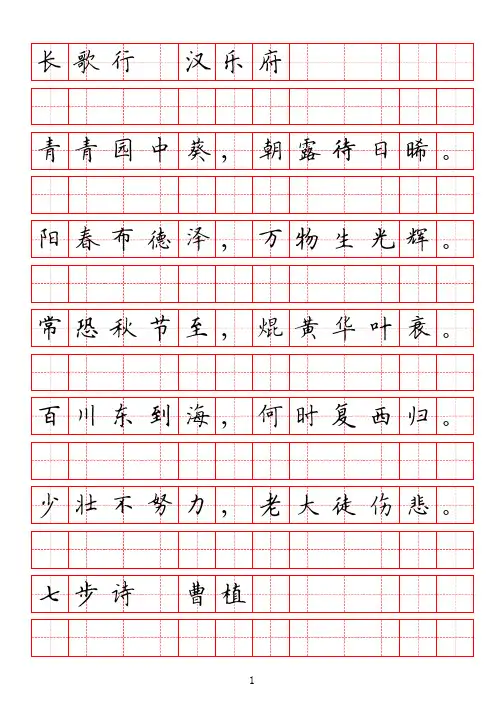 长歌行 汉乐府
青青园中葵，朝露待日晞。
阳春布德泽，万物生光辉。
常恐秋节至，焜黄华叶衰。
百川东到海，何时复西归。
少壮不努力，老大徒伤悲。
七步诗 曹植
1